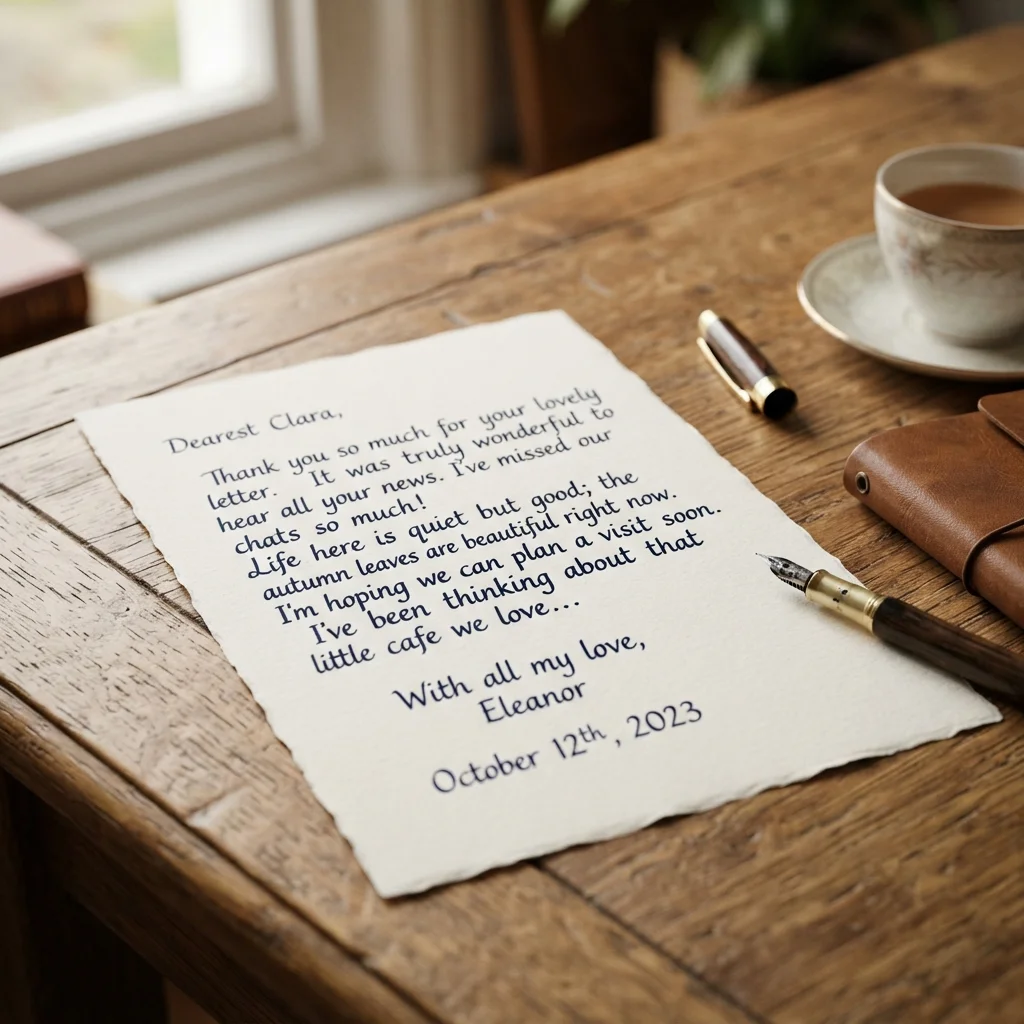 Dearest Clara,
Thank you so much for your lovely
letter. It was truly wonderful to
hear all your news. I've missed our
chats so much!
Life here is quiet but good; the
autumn leaves are beautiful right now.
I'm hoping we can plan a visit soon.
I've been thinking about that
little cafe we love...
With all my love,
Eleanor
October 12th, 2023